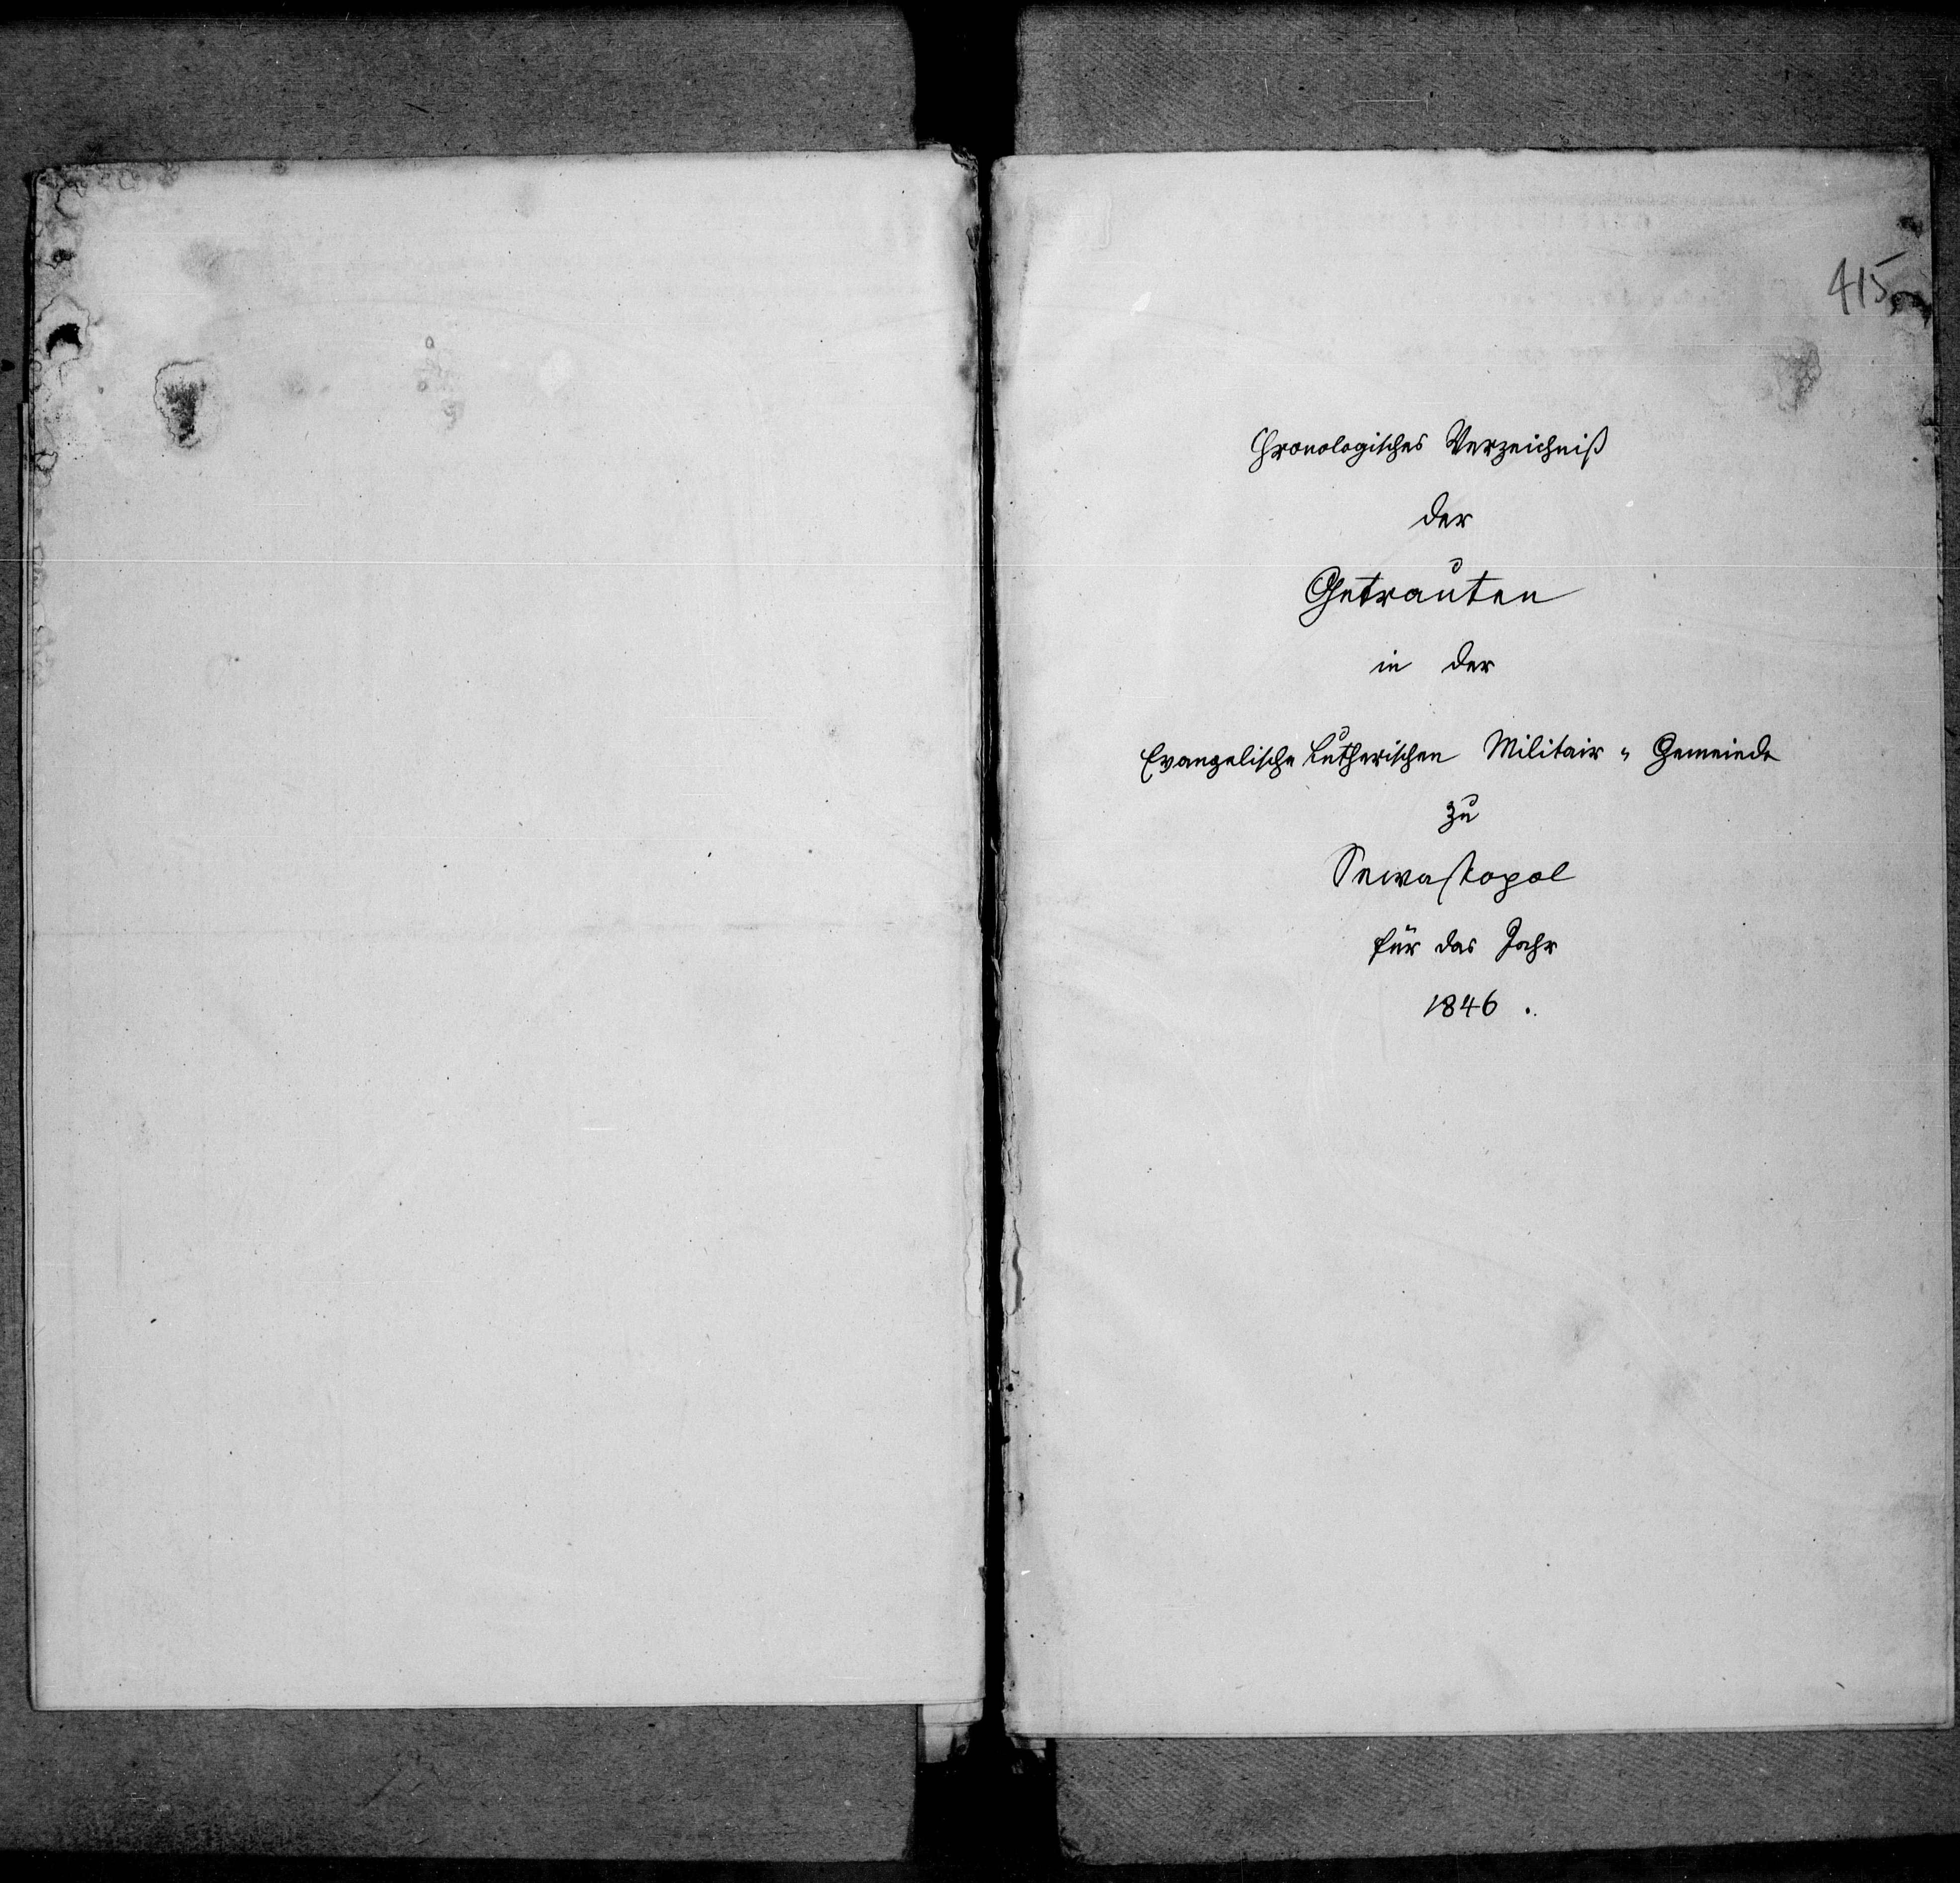 415
Chronologisches Verzeichniß
der
Getrauten
in der
Evangelische Lutherischen Militair " Gemeinde
zu
Sewastopol
für das Jahr
1846 .